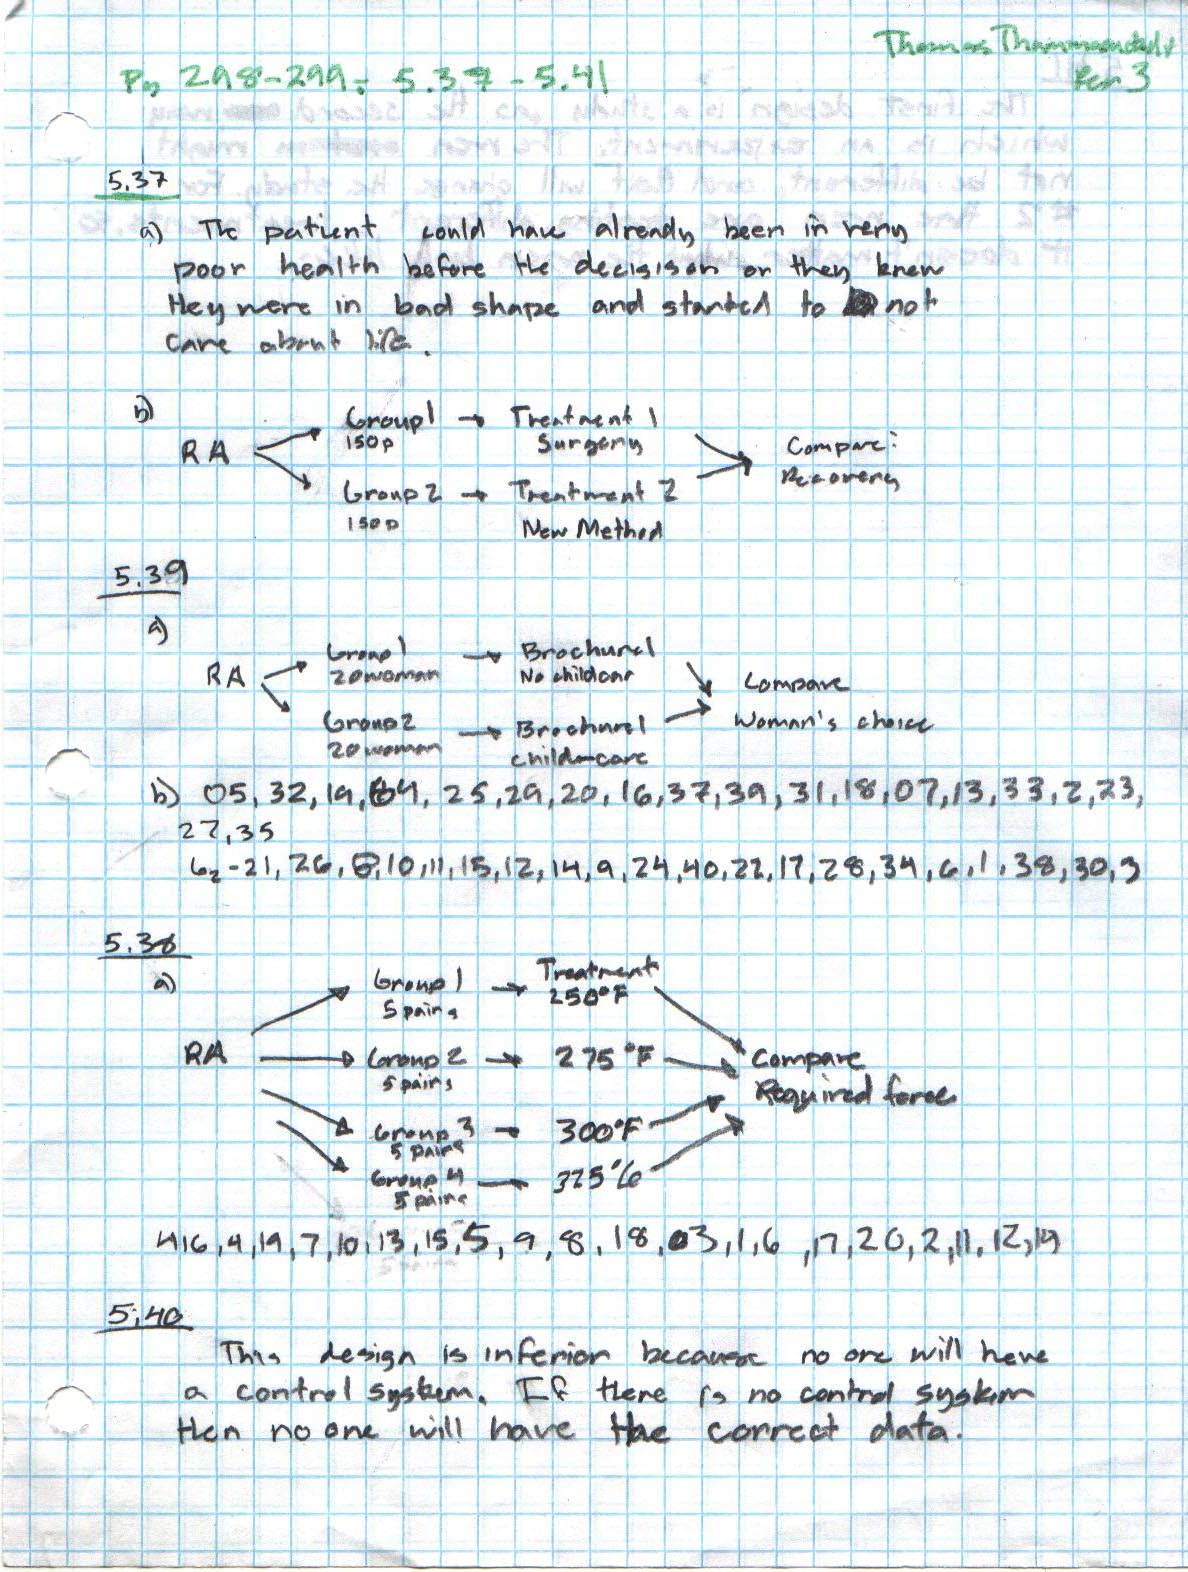 Thomas
Pg 298-299: 5.37 - 5.41
Per 3
5.37
a) The patient could have already been in very
poor health before the decisison or they knew
they were in bad shape and started to not
care about life.
b)
RA
Group 1 → Treatment 1
150p Surgery
Group 2 → Treatment 2
150p New Method
Compare:
Recovery
5.39
a)
RA
Group 1 → Brochure 1
20 woman No childcar
Group 2 → Brochure 1
20 woman child-care
Compare
Woman's choice
b) 05, 32, 19, 04, 25, 29, 20, 16, 37, 39, 31, 18, 07, 13, 33, 2, 23,
27, 35
G2 - 21, 26, 8, 10, 11, 15, 12, 14, 9, 24, 40, 22, 17, 28, 34, 6, 1, 38, 30, 3
5.38
a)
RA
Group 1 → Treatment
5 pairs 250°F
Group 2 → 275°F
5 pairs
Group 3 → 300°F
5 pairs
Group 4 → 325°
5 pairs
Compare
Required force
16, 4, 19, 7, 10, 13, 15, 5, 9, 8, 18, 03, 1, 6, 17, 20, 2, 11, 12, 14
5.40
This design is inferior because no one will have
a control system. If there is no control system
then no one will have the correct data.